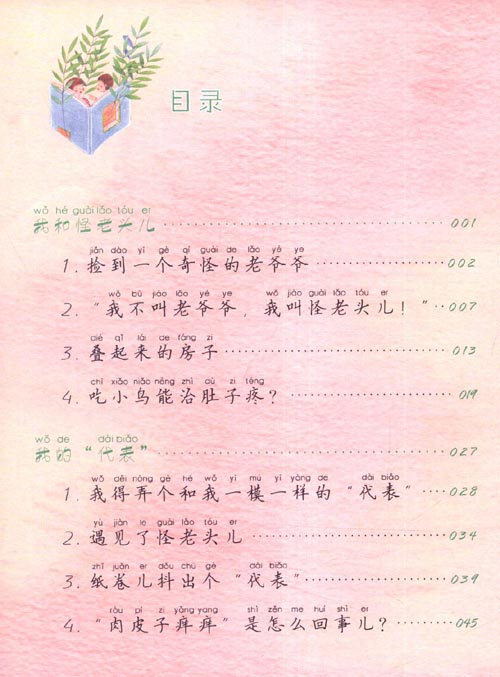 目录
wǒ hé guài lǎo tóu er
我和怪老头儿 001
jiǎn dào yí gè qí guài de lǎo yé ye
1. 捡到一个奇怪的老爷爷 002
wǒ bú jiào lǎo yé ye wǒ jiào guài lǎo tóu er
2. “我不叫老爷爷，我叫怪老头儿！” 007
dié qǐ lái de fáng zi
3. 叠起来的房子 013
chī xiǎo niǎo néng zhì dù zi téng
4. 吃小鸟能治肚子疼？ 019
wǒ de dài biǎo
我的“代表” 027
wǒ děi nòng gè hé wǒ yì mú yí yàng de dài biǎo
1. 我得弄个和我一模一样的“代表” 028
yù jiàn le guài lǎo tóu er
2. 遇见了怪老头儿 034
zhǐ juǎn er dǒu chū gè dài biǎo
3. 纸卷儿抖出个“代表” 039
ròu pí zi yǎng yang shì zěn me huí shì er
4. “肉皮子痒痒”是怎么回事儿？ 045